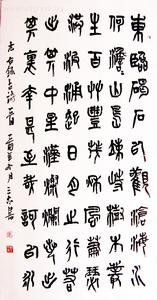 東臨碣石以觀滄海水
何澹澹山島竦峙樹木叢
生百草豐茂秋風蕭瑟
洪波涌起日月之行若
出其中星漢燦爛若出
其裏幸甚至哉歌以詠志